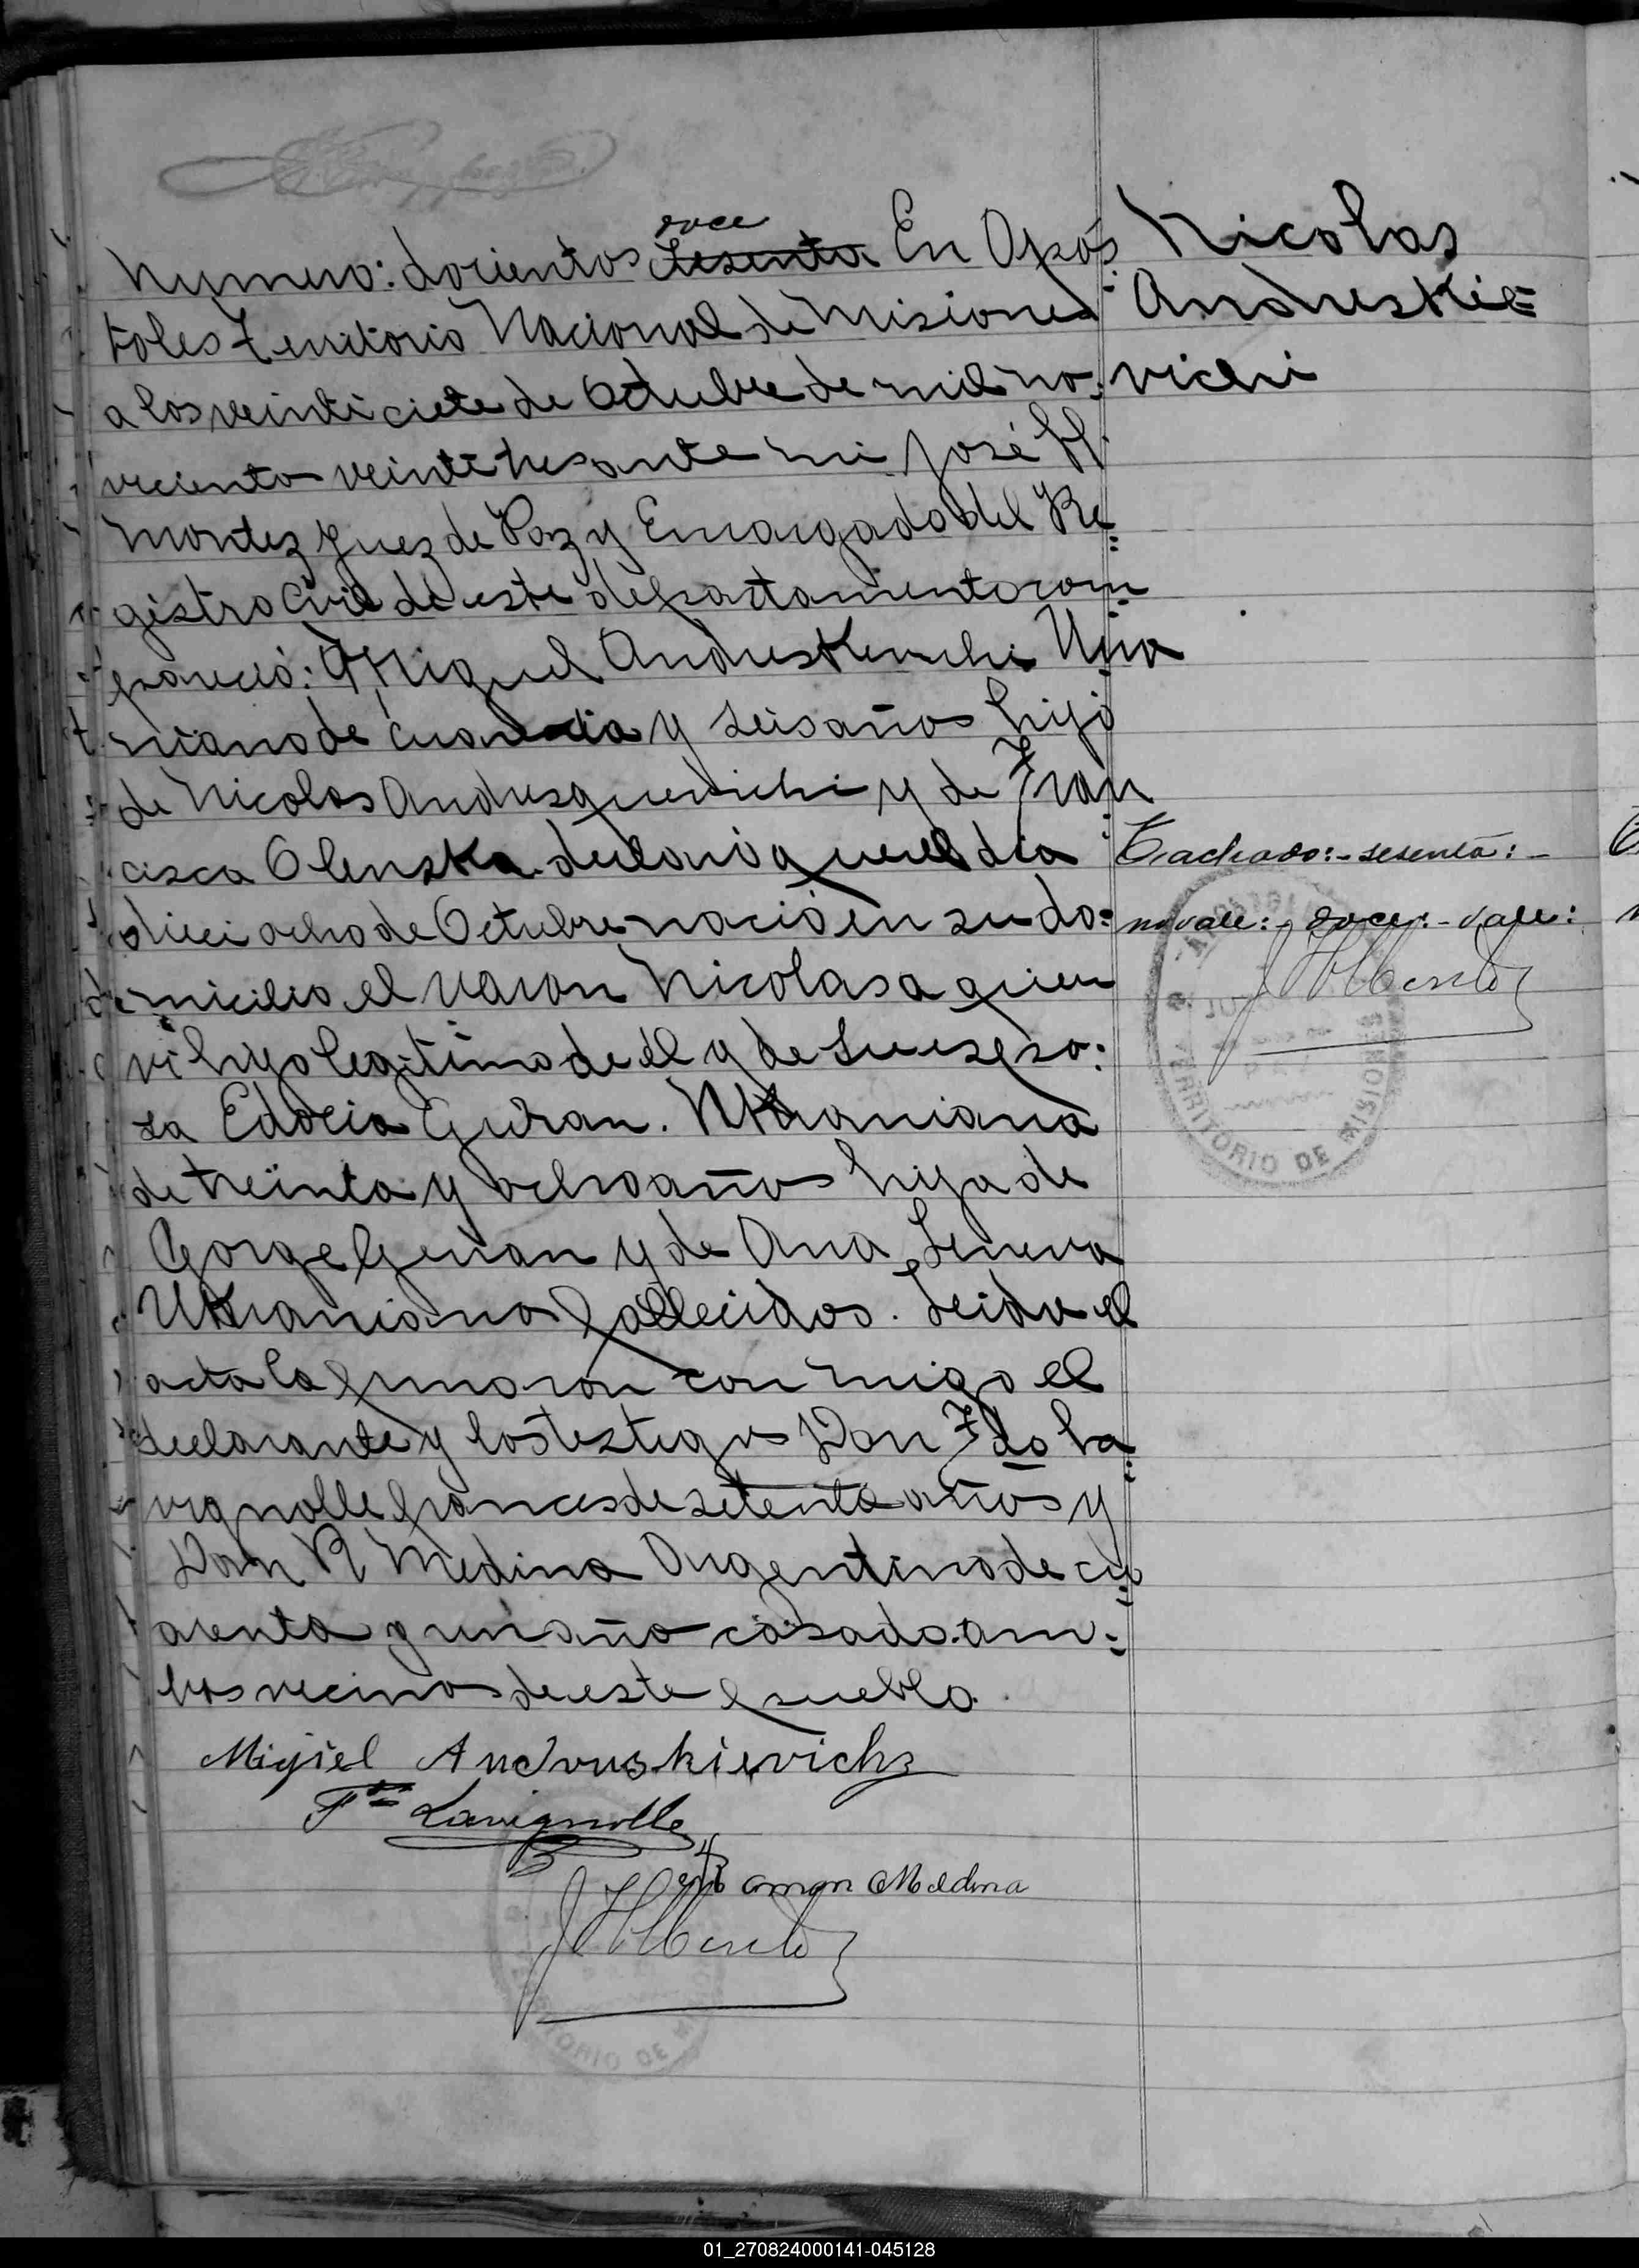 Numero: docientos sesenta doce En Após
Nicolas
toles Territorio Nacional de Misiones
Andreskie=
a los veinti ciete de Octubre de mil no:
vichi
vecientos veintitres ante mi José H
Montez Juez de Paz y Encargado del Re=
gistro Civil de este departamento com
pareció: Miguel Andreskievichi Ucra
niano de cuarenta y seis años hijo
de Nicolas Andresquevichi y de Fran
cisca Olenska declaró que el dia
Tachado:-sesenta:-
dieci ocho de Octubre nació en su do=
no vale:- doce:- vale:
micilio el varon Nicolas a quien
vi hijo legitimo de el y de su espo:
sa Edocia Guran. Ukraniana
de treinta y ocho años hija de
Gorge Guran y de Ana
Ukranianos fallecidos. Leida el
acta la firmaron con migo el
declarante y los testigos Don Fdo La
vignolle frances de setenta años y
Don R Medina Argentino de cu
arenta y un año casado. am:
bos vecinos de este pueblo.
Migiel Andruskievichz
Fdo Lavignolle
Ramon Medina
TERRITORIO DE MISIONES
01_270824000141-045128